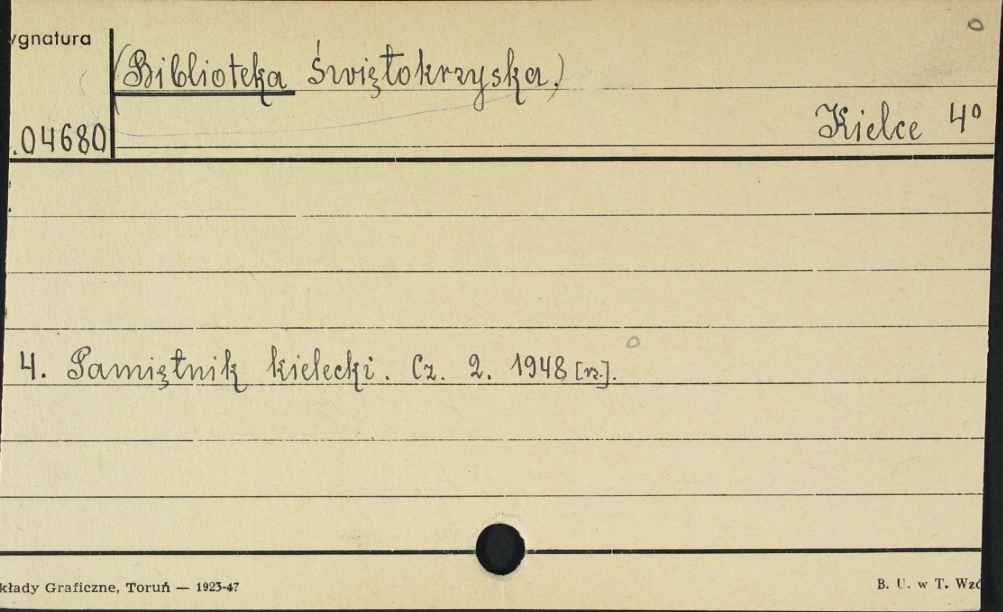 ygnatura
(Biblioteka Świętokrzyska.)
.04680
Kielce 4°
4. Pamiętnik kielecki. Cz. 2. 1948 [rz.].
kłady Graficzne, Toruń — 1923-47
B. U. w T. Wzó